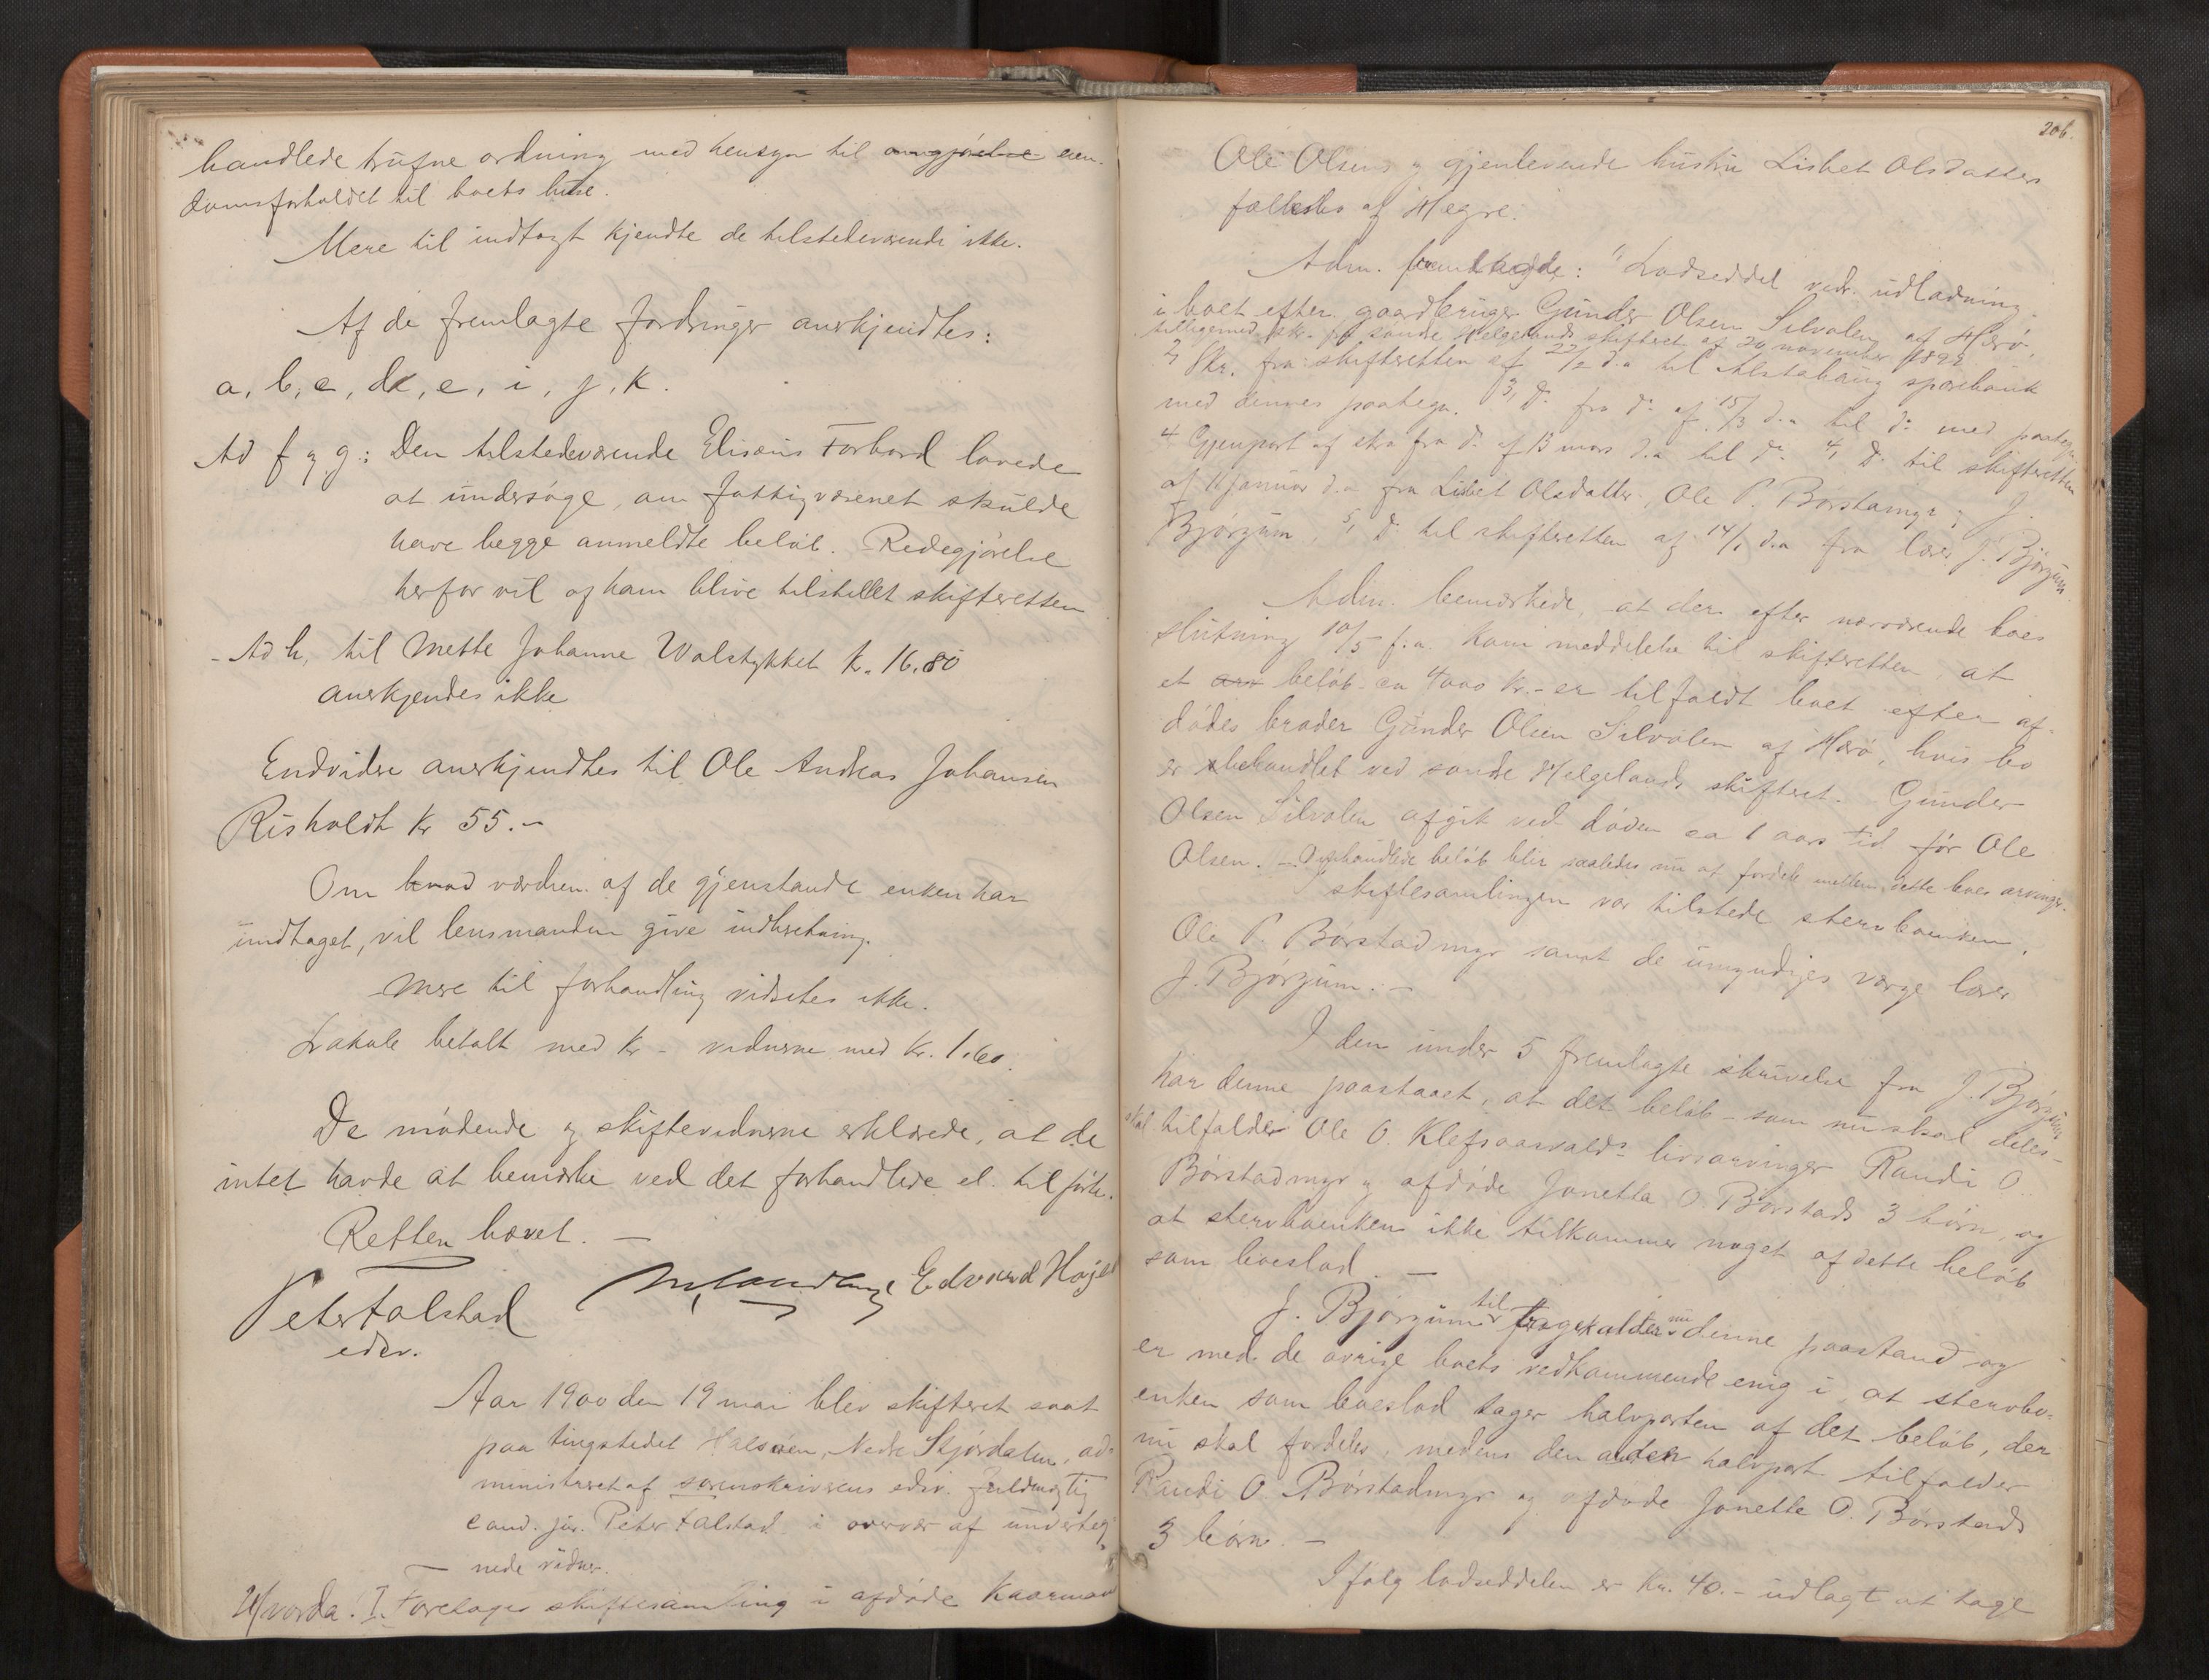 handlede trufne ordning med hensyn til omgjørelse eien-
domsforholdet til boets huse.
Mere til indtægt kjendte de tilstedeværende ikke.
Af de fremlagte fordringer anerkjendtes:
a, b, c, d, e, i, j, k.
Ad f og g: Den tilstedeværende Elisæus Forbord lovede
at undersøge, om fattigvæsenet skulde
have begge anmeldte beløb. Redegjørelse
herfor vil af ham blive tilstillet skifteretten
Ad h, til Mette Johanne Volstykket kr. 16.80
anerkjendes ikke
Endvidere anerkjendtes til Ole Andreas Johansen
Risholdt kr 55.-
Om hvad værdien af de gjenstande enken har
undtaget, vil lensmanden give indberetning.
Mere til forhandling vidstes ikke.
Lokale betalt med kr - vidnerne med kr. 1.60.
De mødende og skiftevidnerne erklærede, at de
intet havde at bemærke ved det forhandlede el. tilførte.
Retten hævet. -
Peter Falstad Edvard Hojem
edsv.
Aar 1900 den 19 mai blev skifteret sat
paa tingstedet Halsøen, Nedre Stjørdalen, ad-
ministreret af sorenskriverens edsv. fuldmægtig
cand. jur. Peter Falstad i overvær af underteg-
nede vidner.
Hvorda: I. Foretages skiftesamling i afdøde Kaarmand
206.
Ole Olsens og gjenlevende hustru Lisbet Olsdatters
fællesbo af Hegre.
Adm. fremlagde: 1, Lodseddel vedr. udlodning
i boet efter gaardbruger Gunder Olsen Silvalen af Herø,
tilligemed skr. fra søndre Helgelands skifteret af 20 november 1899
2, Skr. fra skifteretten af 22/2 d.a. til Alstahaug sparebank
med dennes paategn. 3, Do fra do af 15/3 d.a. til do med paategn.
4 Gjenpart af skr fra do af 13 mars d.a. til do 4, Do til skifteretten
af 11 januar d.a. fra Lisbet Olsdatter, Ole P. Børstadmyr og J.
Bjørgum, 5, Do til skifteretten af 14/1 d.a. fra lærer J. Bjørgum.
Adm. bemærkede, at der efter nærværende boes
slutning 10/5 f.a. kom meddelelse til skifteretten, at
et beløb - ca 4000 kr. - er tilfaldt boet efter af-
dødes broder Gunder Olsen Silvalen af Herø, hvis bo
er behandlet ved søndre Helgelands skifteret. Gunder
Olsen Silvalen afgik ved døden ca 1 aars tid før Ole
Olsen. - Omhandlede beløb blir saaledes nu at fordele mellem dette boes arvinger.
I skiftesamlingen var tilstede stervboenken,
Ole P. Børstadmyr samt de umyndiges værge lærer
J. Bjørgum. -
I den under 5 fremlagte skrivelse fra J. Bjørgum
har denne paastaaet, at det beløb - som nu skal deles -
skal tilfalder Ole O. Klefsaasvalds livsarvinger Randi O.
Børstadmyr og afdøde Jonetta O. Børstads 3 børn, og
at stervboenken ikke tilkommer noget af dette beløb
som boeslod. -
J. Bjørgum til fragekalder nu denne paastand og
er med de øvrige boets vedkommende enig i, at stervbo-
enken som boeslod tager halvparten af det beløb, der
nu skal fordeles, medens den anden halvpart tilfalder
Randi O. Børstadmyr og afdøde Jonetta O. Børstads
3 børn. -
Ifølg lodseddelen er kr. 40.- udlagt at tage